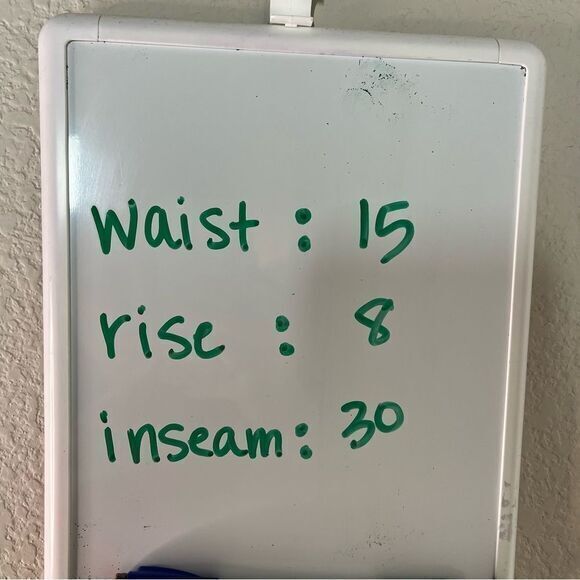 waist : 15
rise : 8
inseam : 30